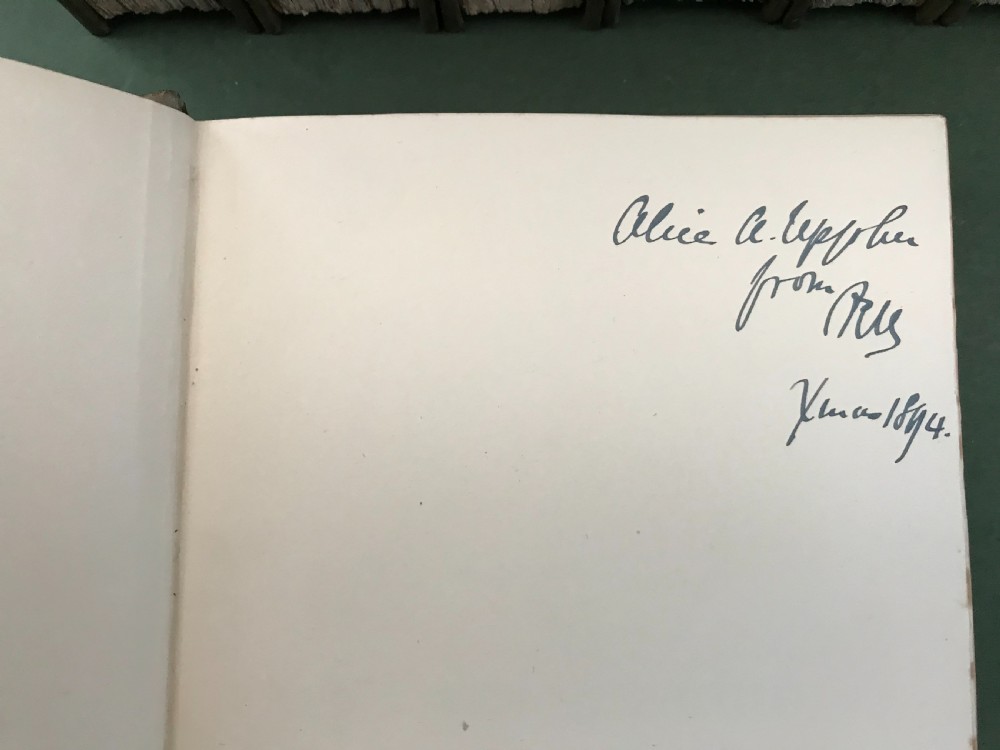 Alice A. Upjohn
from
Xmas 1894.